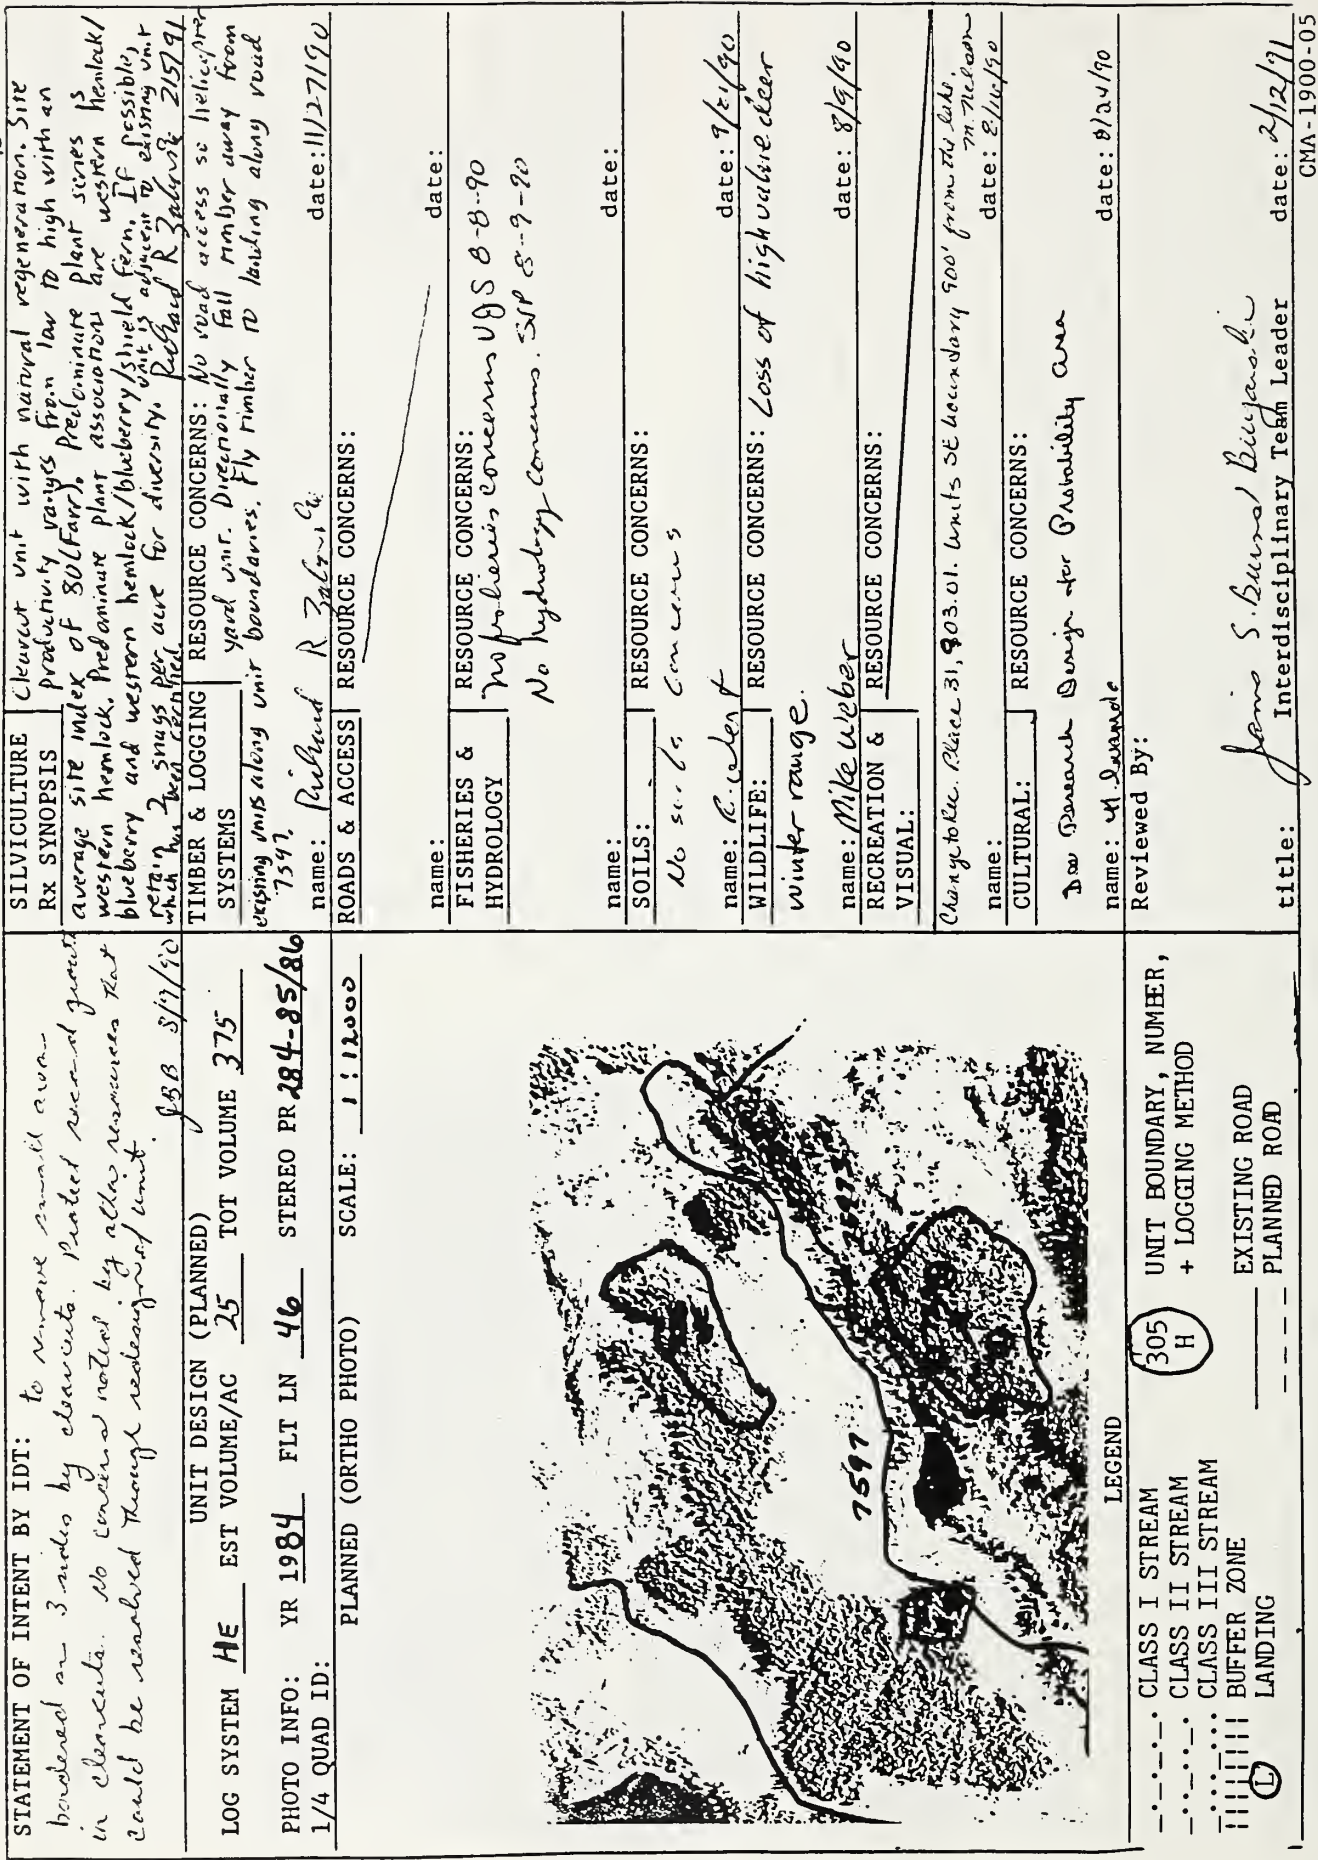 STATEMENT OF INTENT BY IDT: to remove small area
bordered on 3 sides by clearcuts. Protect second growth
in clearcuts. No concerns noted by other resources that
could be resolved through redesign of unit.
JBB 8/9/90
UNIT DESIGN (PLANNED)
LOG SYSTEM HE EST VOLUME/AC 25 TOT VOLUME 375
PHOTO INFO: YR 1984 FLT LN 46 STEREO PR 284-85/86
1/4 QUAD ID:
PLANNED (ORTHO PHOTO) SCALE: 1:12000
7597
7597
LEGEND
CLASS I STREAM
CLASS II STREAM
CLASS III STREAM
BUFFER ZONE
L LANDING
305 UNIT BOUNDARY, NUMBER,
H + LOGGING METHOD
EXISTING ROAD
PLANNED ROAD
SILVICULTURE Clearcut unit with natural regeneration. Site
Rx SYNOPSIS productivity varges from low to high with an
average site index of 80 (Farr). Predominure plant series is
western hemlock. Predominure plant associations are western hemlock/
blueberry and western hemlock/blueberry/shield fern. If possible,
retain 2 snags per acre for diversity. Unit is adjacent to existing unit
which has been certified. Richard R Zaborske 2/5/91
TIMBER & LOGGING RESOURCE CONCERNS: No road access so helicopter
SYSTEMS yard unit. Directionally fall timber away from
existing units along unit boundaries. Fly timber to landing along road
7597.
name: Richard R Zaborske date: 11/27/90
ROADS & ACCESS RESOURCE CONCERNS:
name: date:
FISHERIES & RESOURCE CONCERNS:
HYDROLOGY No fisheries concerns VGS 8-8-90
No hydrology concerns. SJP 8-9-90
name: date:
SOILS: RESOURCE CONCERNS:
No soils concerns
name: date: 9/21/90
WILDLIFE: RESOURCE CONCERNS: Loss of high value deer
winter range.
name: Mike Weber date: 8/9/90
RECREATION & RESOURCE CONCERNS:
VISUAL:
Change to Rec. Place 31, 803.01. Units SE boundary 900' from the lake.
M. Nelson
name: date: 8/16/90
CULTURAL: RESOURCE CONCERNS:
See Research Design for Probability area
name: date: 8/24/90
Reviewed By:
title: Interdisciplinary Team Leader date: 2/12/91
CMA-1900-05